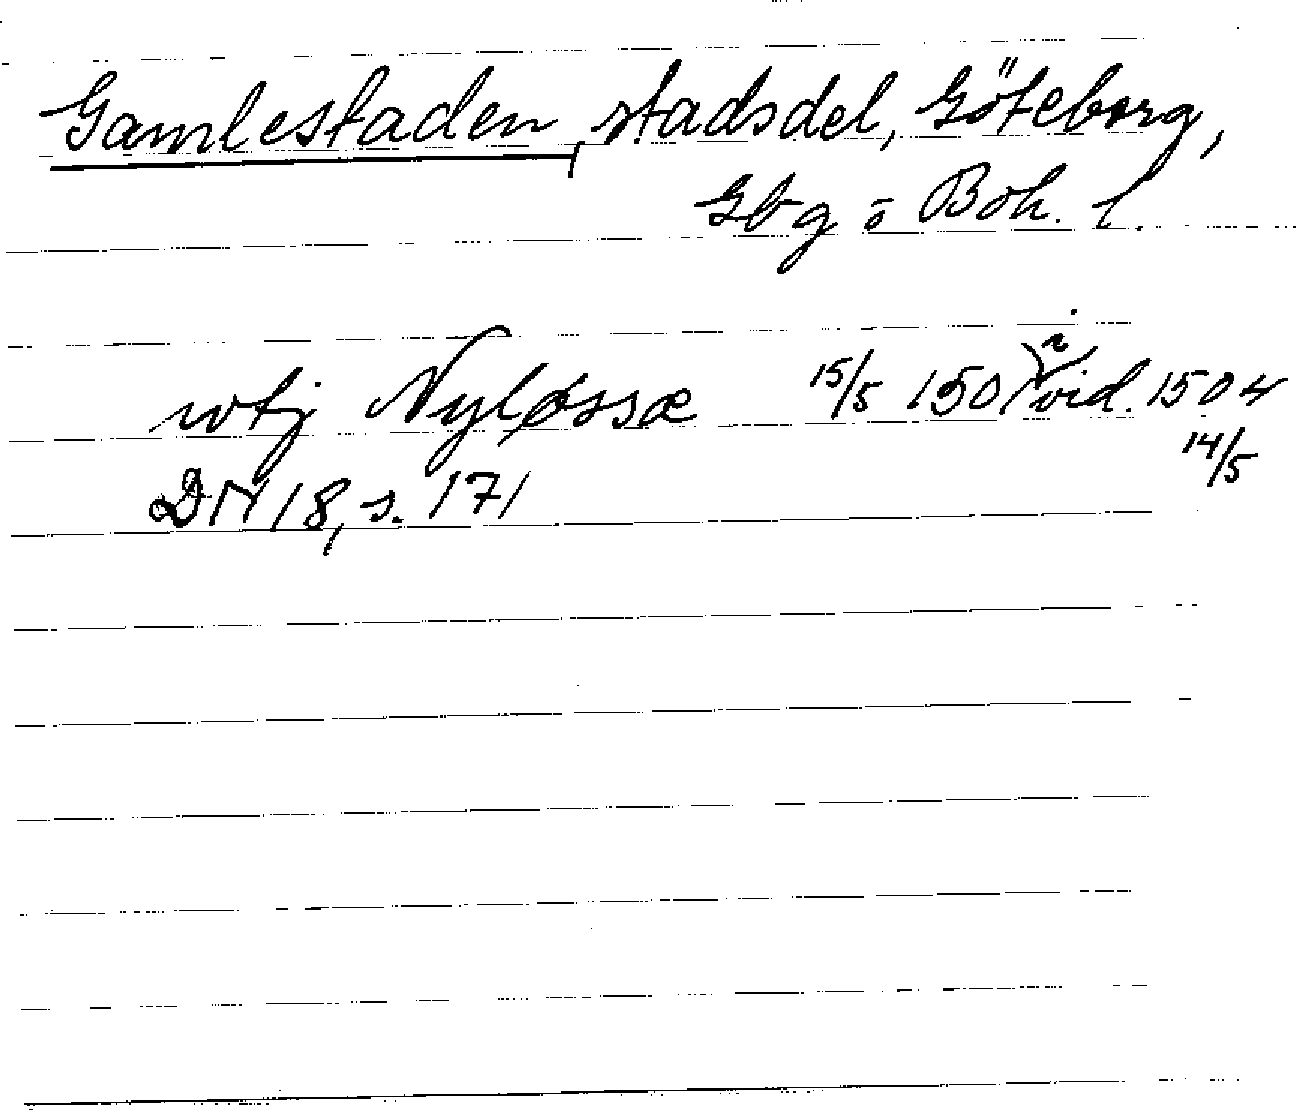 Gamlestaden, stadsdel, Göteborg,
Gbg o Boh. l.
wtj Nyløssæ 15/5 1501 i vid. 1504
14/5
DN 18, s. 171